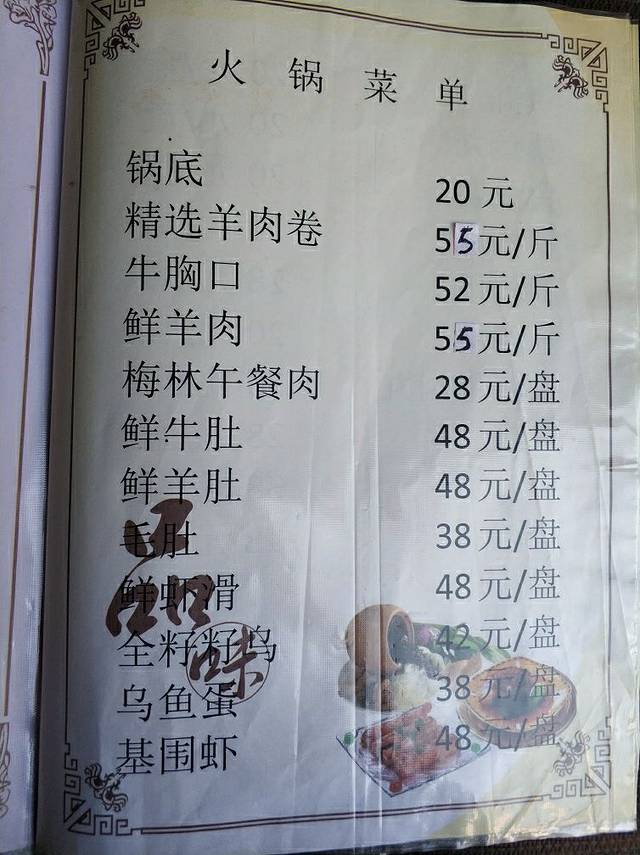 火锅菜单
锅底 20 元
精选羊肉卷 55元/斤
牛胸口 52 元/斤
鲜羊肉 55元/斤
梅林午餐肉 28 元/盘
鲜牛肚 48 元/盘
鲜羊肚 48 元/盘
毛肚 38 元/盘
鲜虾滑 48 元/盘
全籽籽乌 42 元/盘
乌鱼蛋 38 元/盘
基围虾 48 元/盘
品味